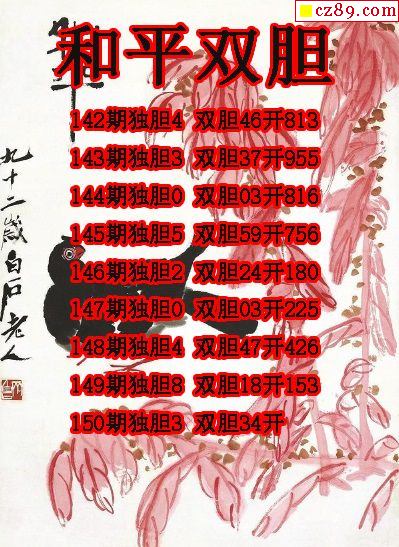 cz89.com
和平
和平双胆
142期独胆4 双胆46开813
143期独胆3 双胆37开955
144期独胆0 双胆03开816
145期独胆5 双胆59开756
146期独胆2 双胆24开180
147期独胆0 双胆03开225
148期独胆4 双胆47开426
149期独胆8 双胆18开153
150期独胆3 双胆34开
九十二岁白石老人